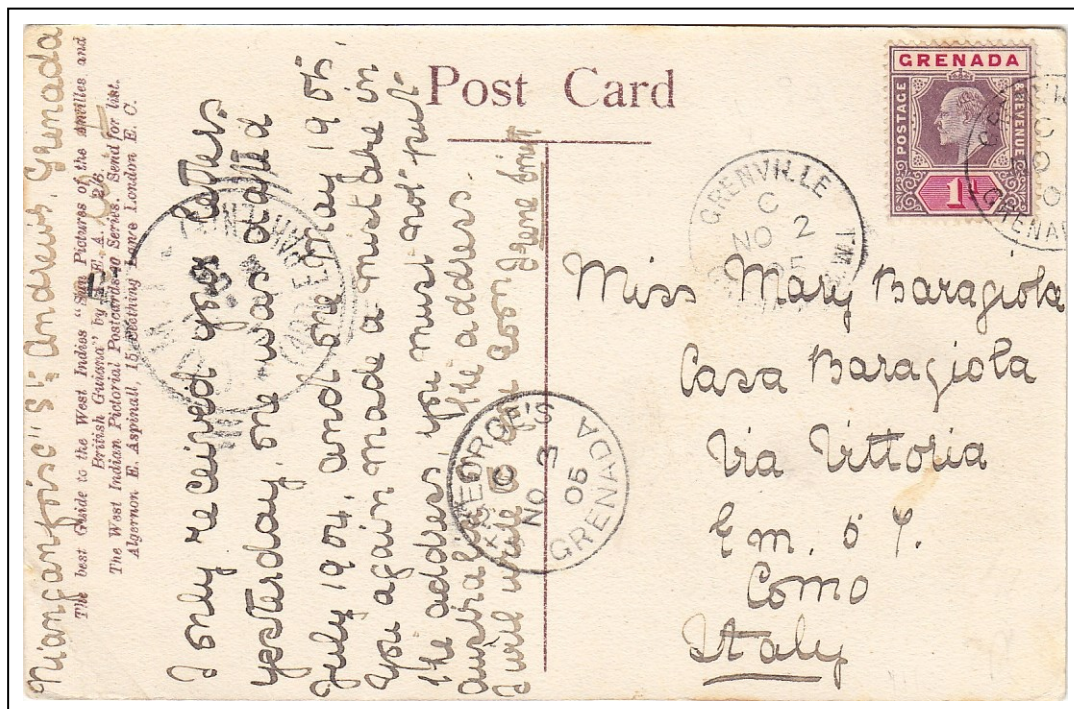 Post Card
GRENADA
POSTAGE
& REVENUE
1d
GRENVILLE
C
NO 2
05
GRENADA
Miss Mary Baragiola
Casa Baragiola
Via Vittoria
Em. 5
Como
Italy
St Andrews, Grenada
The best Guide to the West Indies "Sun Pictures of the Antilles and
British Guiana" by E. A. 2/6.
The West Indian Pictorial Postcards. Series. Send for list.
Algernon E. Aspinall, 15, Clothing Lane London E. C.
I only received your letters
yesterday, one was dated
July 1904, and one may 1905,
You again made a mistake in
the address, you must not put
australia the address.
I will write soon Irene
ST GEORGE'S
C
NO 3
05
GRENADA